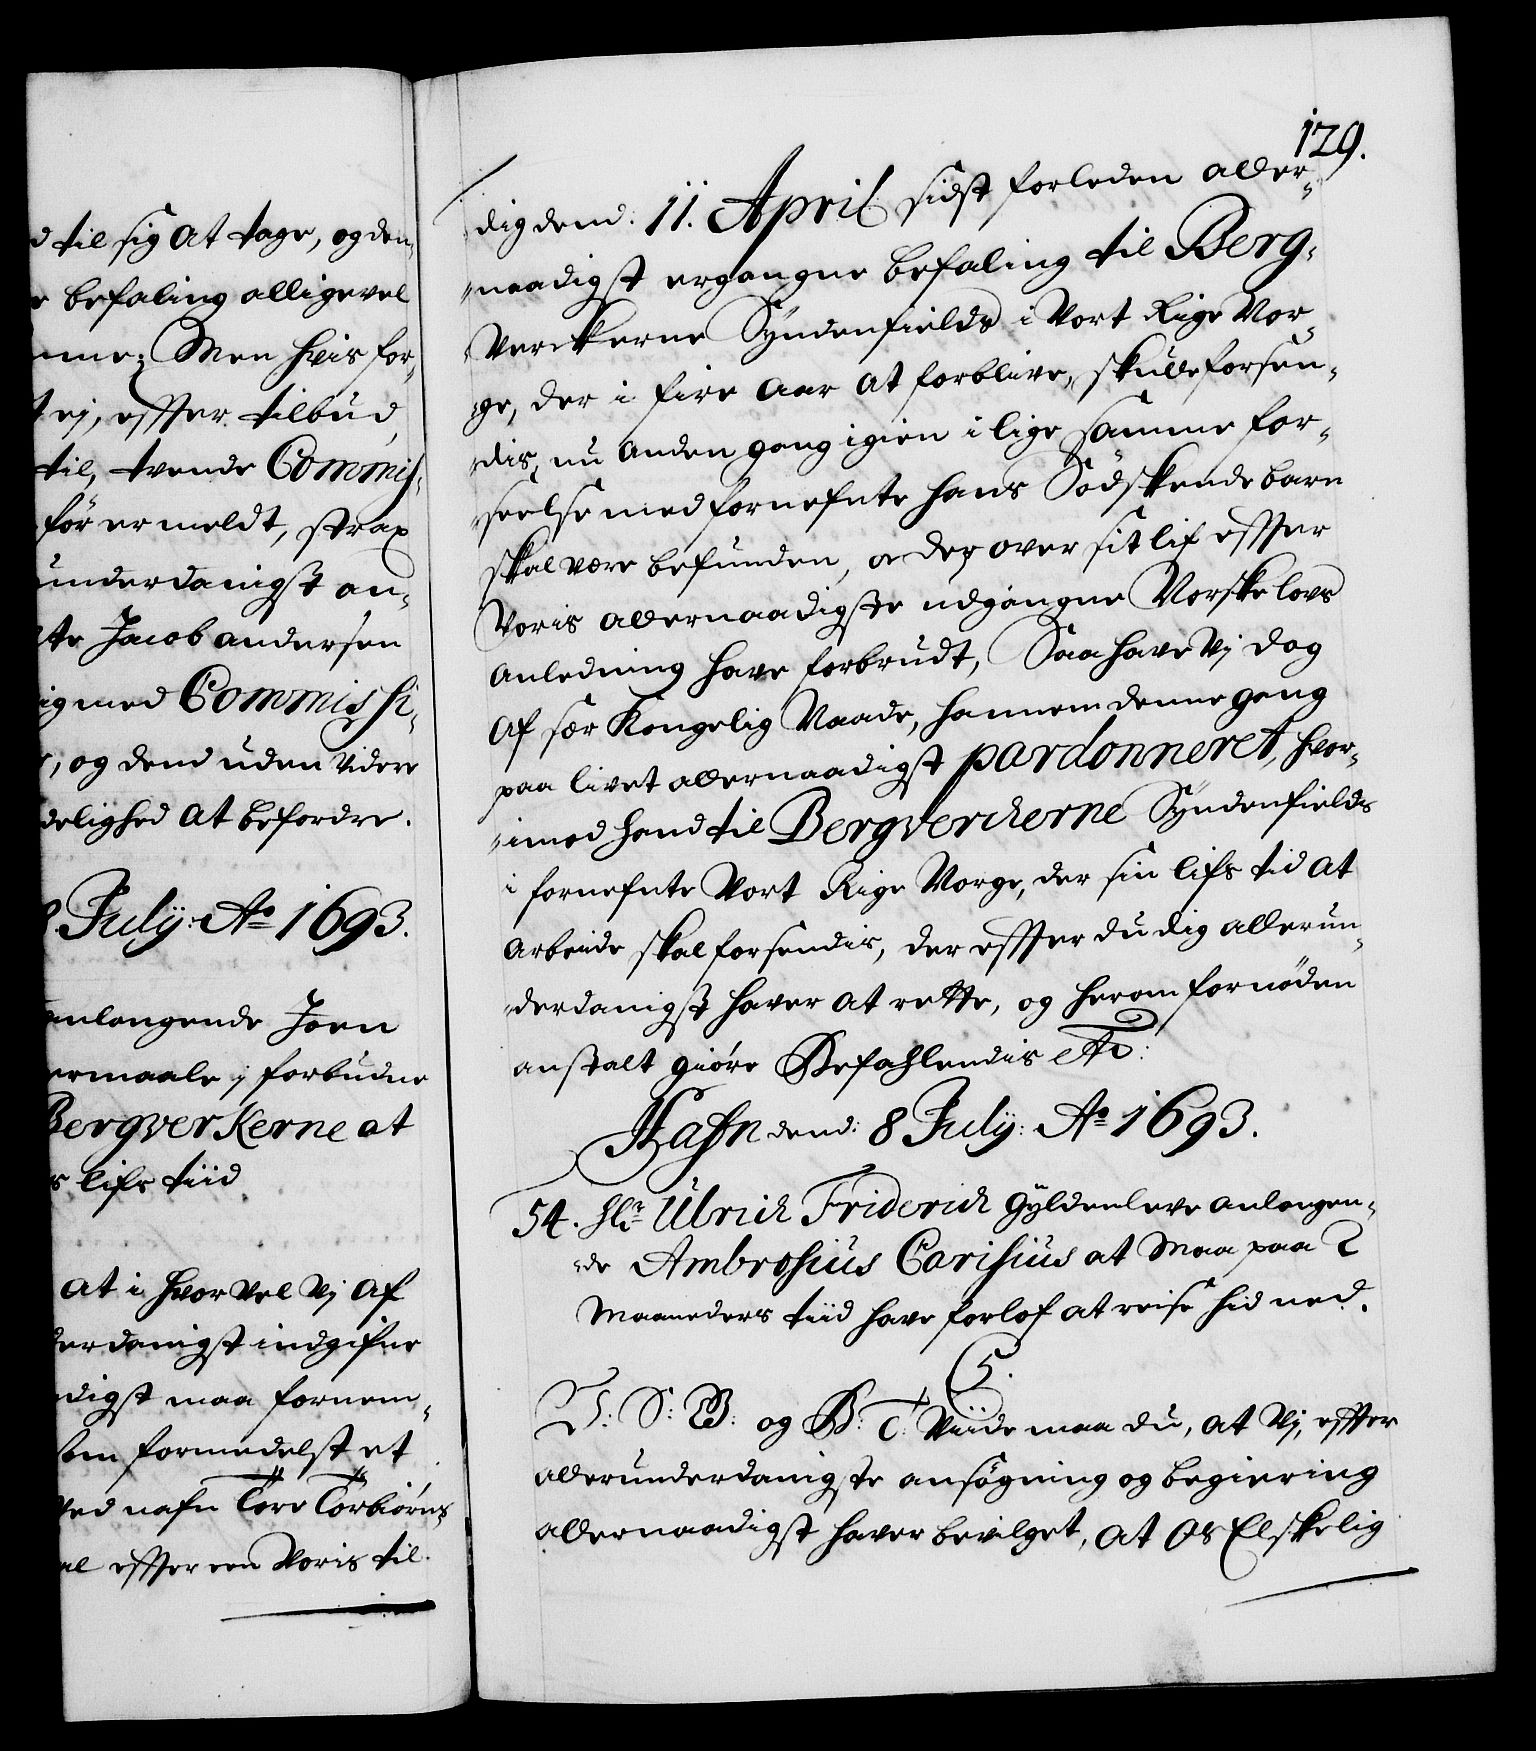 d til sig at tage, og den,
e befaling alligevel
mme; Men hvis for,
t ej, effter tilbud,
til, tvende Commis,
för er meldt, strax
underdanigst an,
te Jacob andersen
ig med Commissi,
, og dend uden videre
delighed at befordre.
8 July: Ao 1693.
anlangende Joen
ermaale i forbudne
Bergverkerne at
s lifs tiid
at i hvor vel Vj af
derdanigst indgifne
digst maa fornem,
som formedelst et
ved nafn Tore Torbiörns
al effter een Voris til
129.
dig dend: 11. April sidst forleden aller,
naadigst ergangne befaling til Berg,
Verckerne Syndenfields i Vort Rige Nor,
ge, der i fire aar at forblive, skulle forsen,
dis, nu anden gang igien i lige samme for,
seelse med fornefnte hans Södskende barn
skal være befunden, oc der over sit lif effter
Voris allernaadigste udgangne Norske lovs
anledning have forbrudt, Saa have Vj dog
af sær Kongelig Naade, hannem denne gang
paa livet allernaadigst pardonneret, hvor,
imod hand til Bergverckerne Syndenfields
i fornefnte Vort Rige Norge, der sin lifs tid at
arbeide skal forsendis, der effter du dig allerun,
derdanigst haver at rette, og herom fornöden
anstalt giöre Befahlendis etc:
Hafn dend: 8 July: Ao 1693.
54. Hr Ulrich Friderich Gyldenleve anlangen,
de Ambrosius Carisius at maa paa 2
Maaneders tiid have forlof at reise hid ned.
C 5.
V: S: G: og B: T: Viide maa du, at Vj, effter
allerunderdanigste ansögning og begiering
allernaadigst haver bevilget, at Os Elskelig